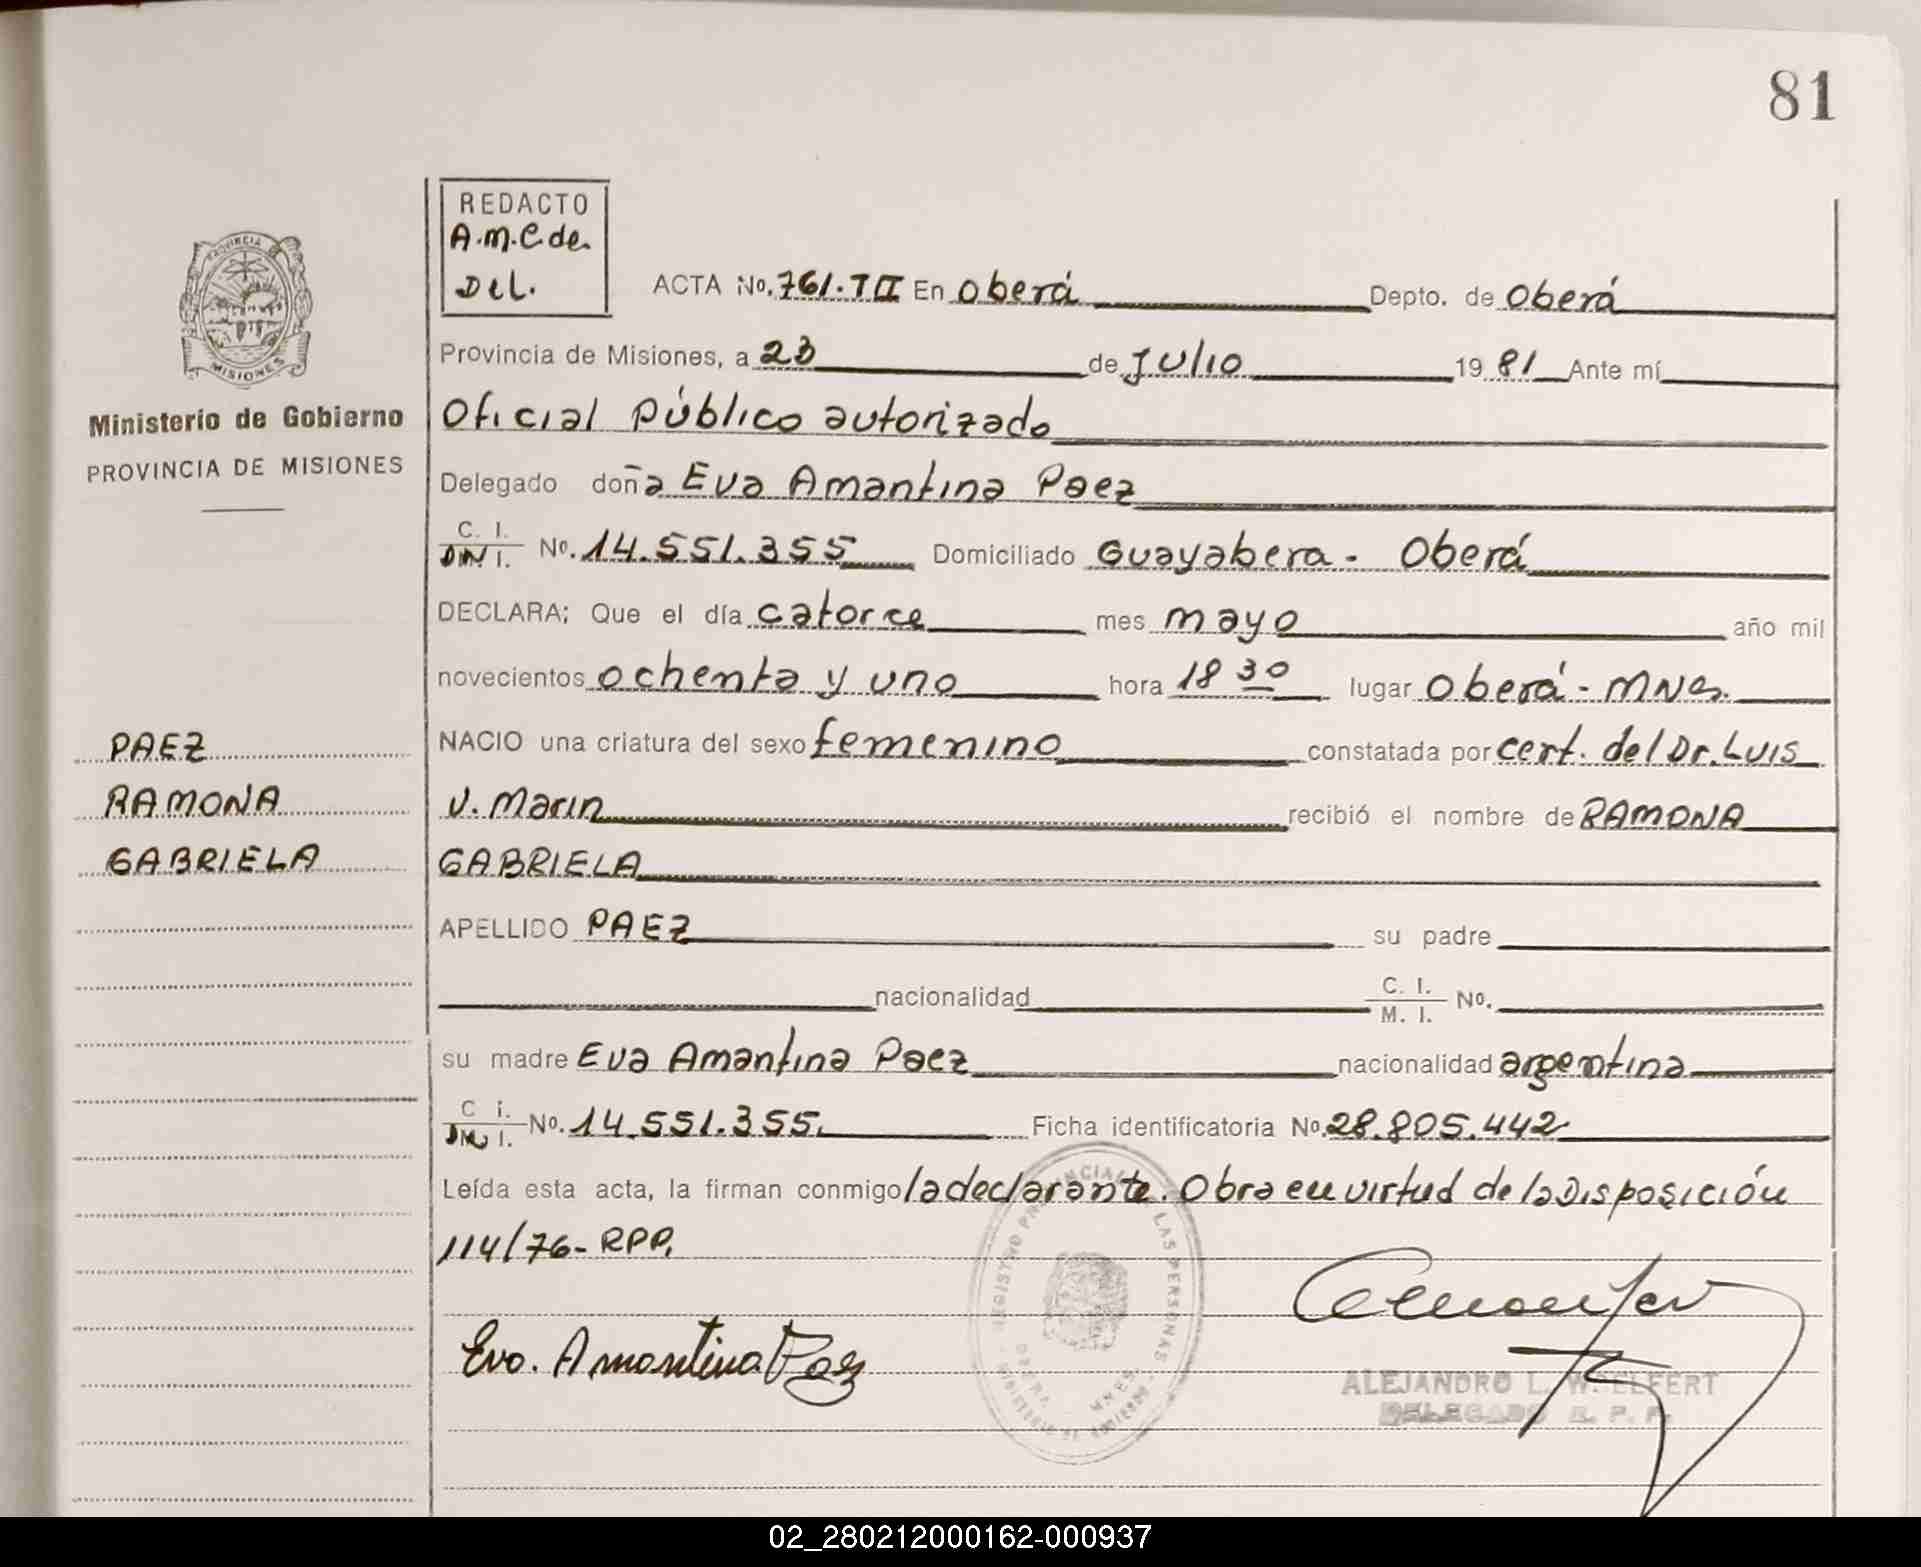 81
REDACTO
A.M.C. de
Del.
ACTA No. 761.TII En Oberá Depto. de Oberá
Provincia de Misiones, a 23 de Julio 1981 Ante mí
Oficial Público autorizado
Delegado doña Eva Amantina Paez
C. I. D.N.I. No. 14.551.355 Domiciliado Guayabera - Oberá
DECLARA: Que el día catorce mes mayo año mil
novecientos ochenta y uno hora 18 30 lugar Oberá - MNES.
NACIO una criatura del sexo femenino constatada por cert. del Dr. Luis
V. Marin recibió el nombre de RAMONA
GABRIELA
APELLIDO PAEZ su padre
nacionalidad C. I. M. I. No.
su madre Eva Amantina Paez nacionalidad argentina
C. I. D.N.I. No. 14.551.355. Ficha identificatoria No. 28.805.442
Leída esta acta, la firman conmigo la declarante. Obra en virtud de la Disposición
114/76- RPP.
Eva. Amantina Paez
ALEJANDRO L. WOELFERT
DELEGADO R. P. P.
REGISTRO PROVINCIAL DE LAS PERSONAS
OBERA MNES.
MINISTERIO DE GOBIERNO
PROVINCIA
MISIONES
Ministerio de Gobierno
PROVINCIA DE MISIONES
PAEZ
RAMONA
GABRIELA
02_280212000162-000937